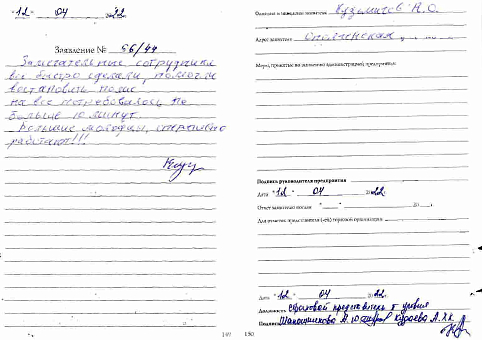 "12" 04 2022
Заявление № 56/44
Замечательные сотрудники
все быстро сделали, помогли
востановить полис
на все потребовалось не
больше 10 минут.
Большие молодцы, оперативно
работают!!!
Фамилия и инициалы заявителя Кузьмичев А.О.
Адрес заявителя Ополченская
Меры, принятые по заявлению администрацией предприятия
Подпись руководителя предприятия
Дата "12" 04 2022 г.
Ответ заявителю послан " " 20 г.
Для отметок представителя (-ей) торговой организации
Дата "12" 04 2022
Должность Страховой представитель I уровня
Подпись Шапошникова А. Ю.
149 150